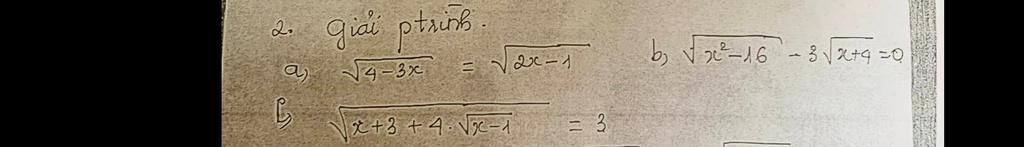 2. Giải ptrình.
a, √(4-3x) = √(2x-1) b, √(x²-16) - 3√(x+4) = 0
c, √(x+3+4.√(x-1)) = 3